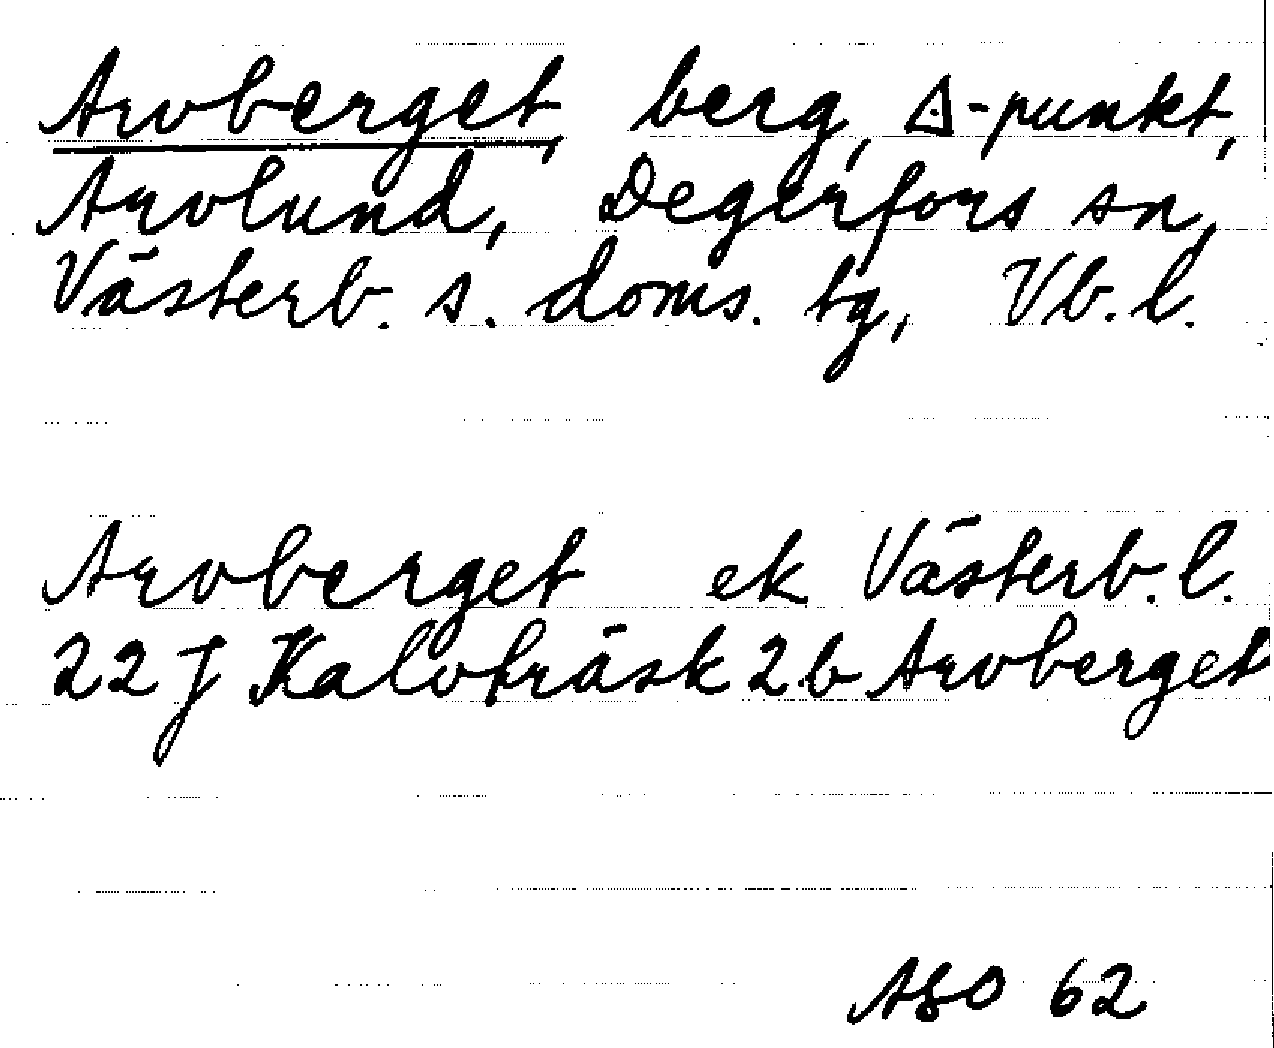 Arvberget, berg, △-punkt,
Arvlund, Degerfors sn,
Västerb. s. doms. tg, Vb. l.
Arvberget ek Västerb. l.
22 J Kalvträsk 2b Arvberget
ASO 62